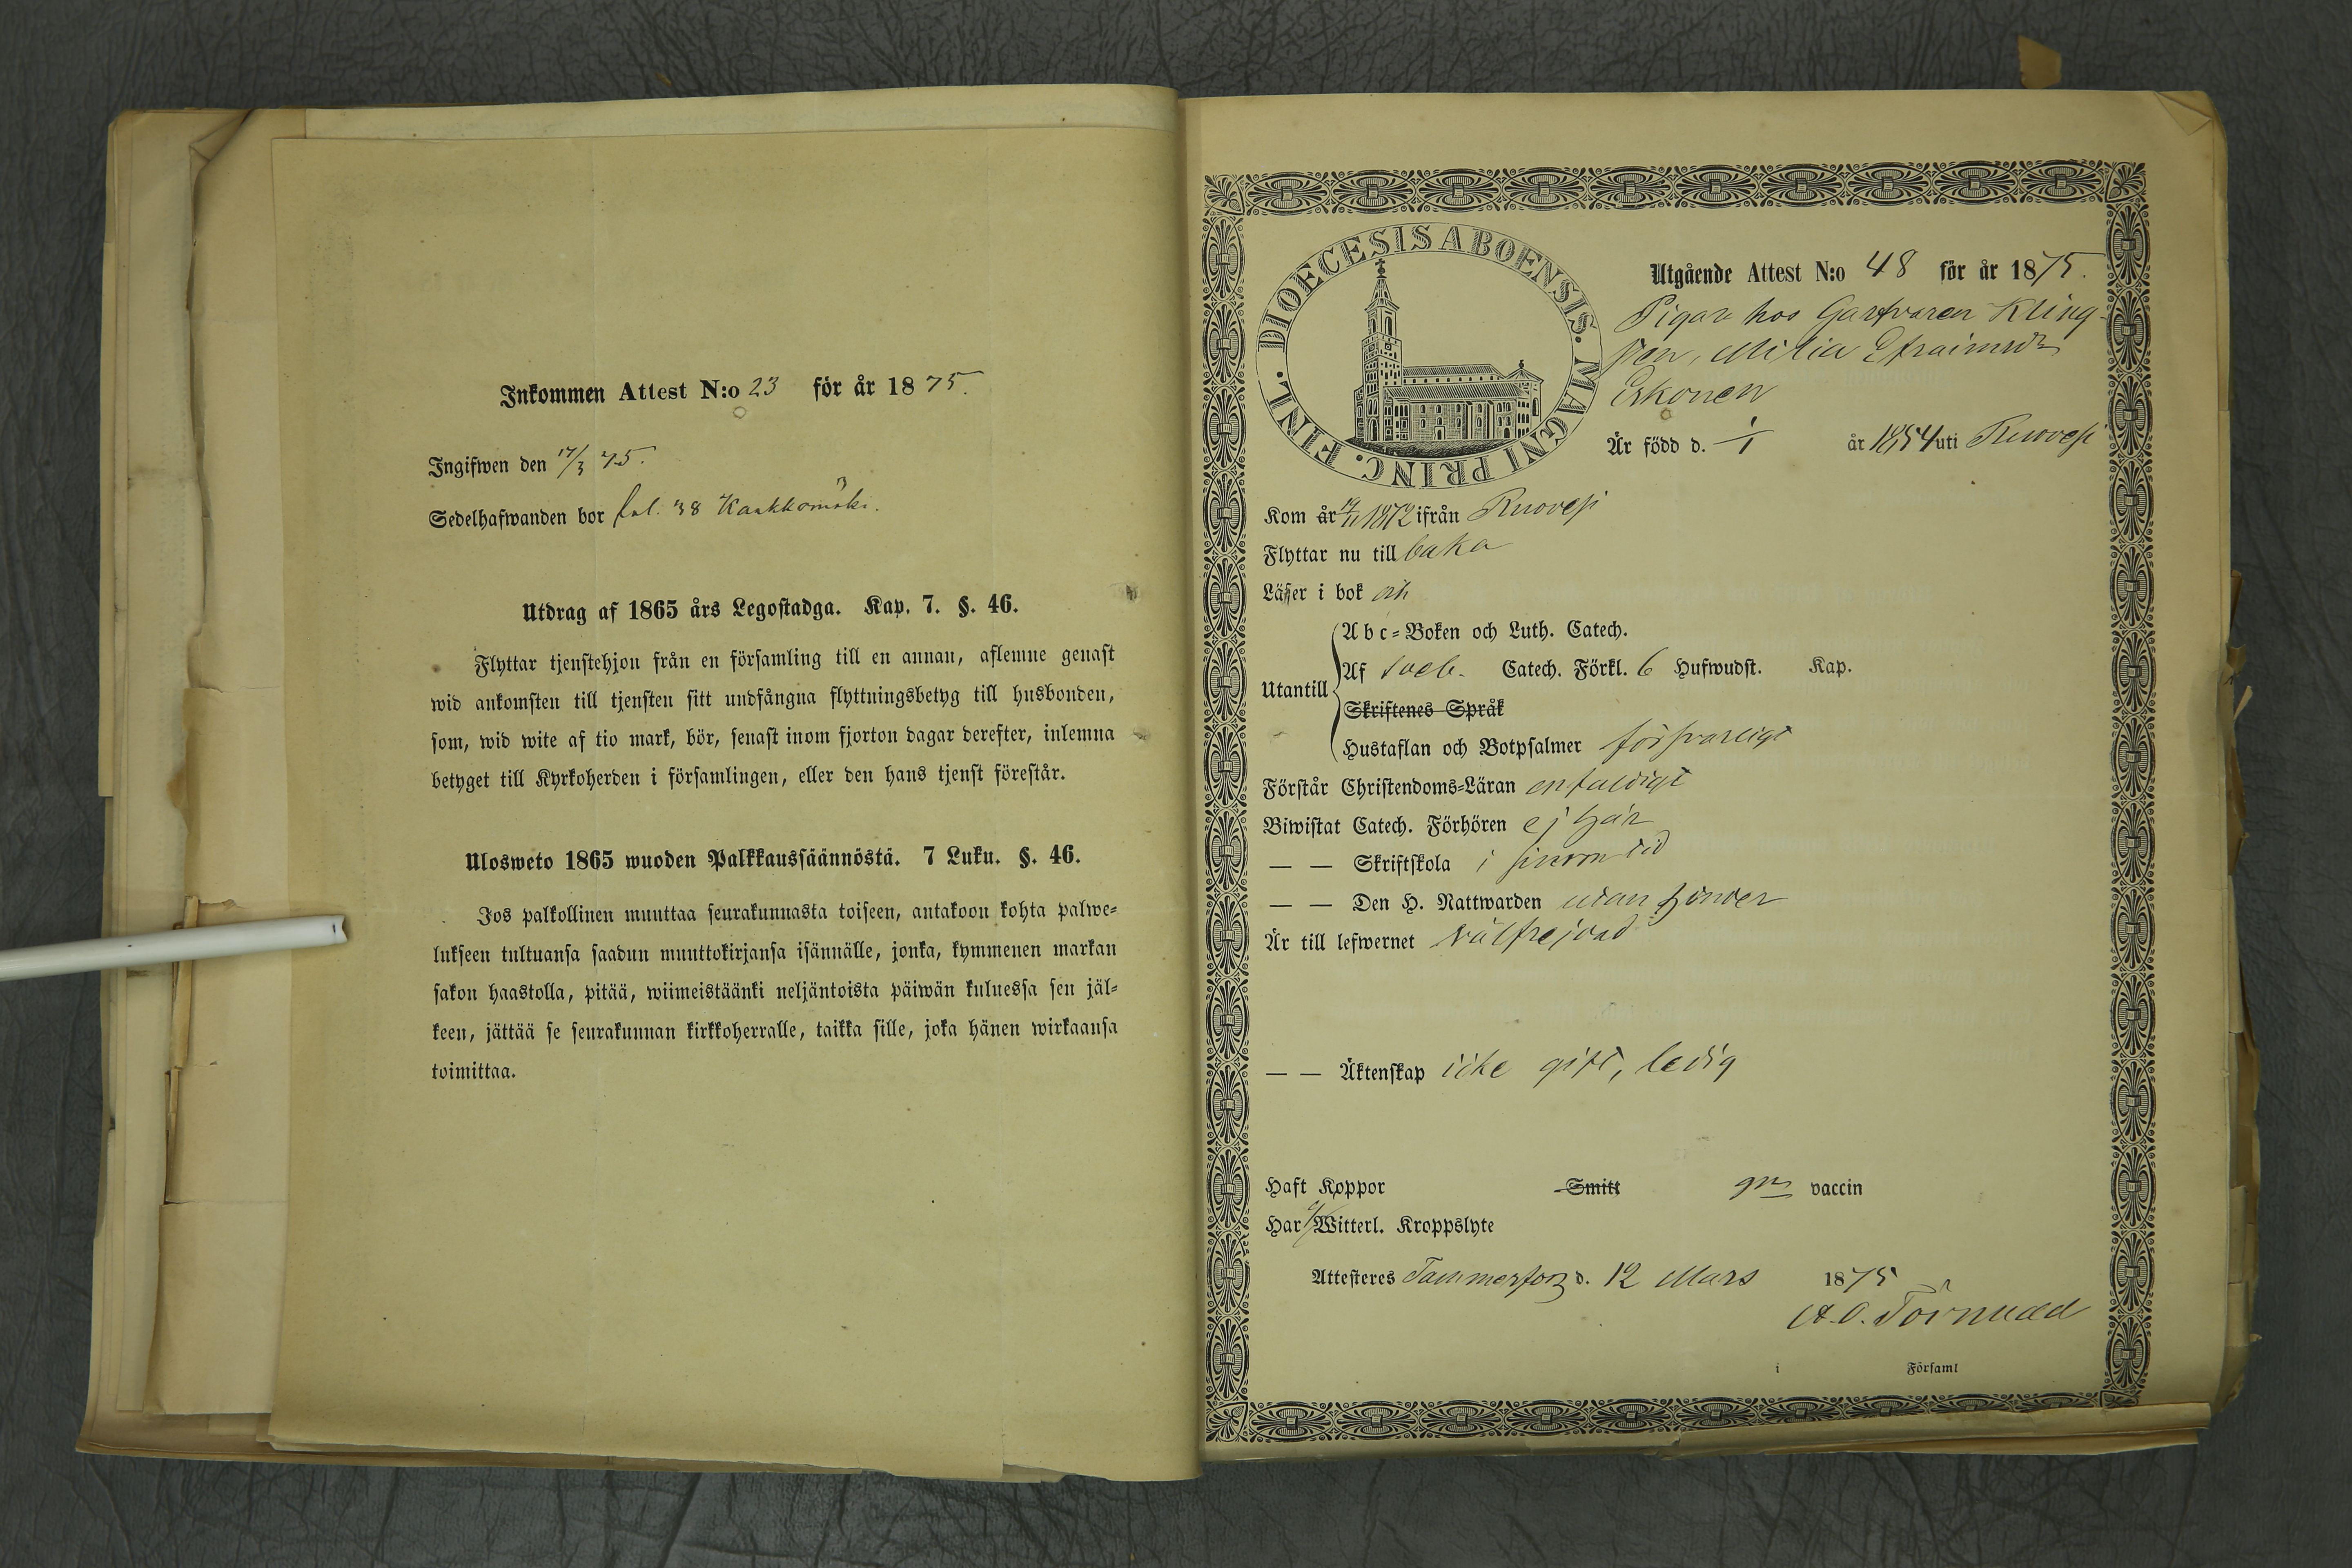 Inkommen Attest N:o 23 för år 1875.
Ingifwen den 17/3 75.
Sedelhafwanden bor fol. 38
Utdrag af 1865 års Legostadga. Kap. 7. §. 46.
Flyttar tjenstehjon från en församling till en annan, aflemne genast
wid ankomsten till tjensten sitt undfångna flyttningsbetyg till husbonden,
som, wid wite af tio mark, bör, senast inom fjorton dagar derefter, inlemna
betyget till Kyrkoherden i församlingen, eller den hans tjenst förestår.
Ulosweto 1865 wuoden Palkkaussäännöstä. 7 Luku. §. 46.
Jos palkollinen muuttaa seurakunnasta toiseen, antakoon kohta palwe=
lukseen tultuansa saadun muuttokirjansa isännälle, jonka, kymmenen markan
sakon haastolla, pitää, wiimeistäänki neljäntoista päiwän kuluessa sen jäl=
keen, jättää se seurakunnan kirkkoherralle, taikka sille, joka hänen wirkaansa
toimittaa.
DIOECESIS ABOENSIS. MAGNI PRINC. FINL.
Utgående Attest N:o 48 för år 1875.
Pigan hos Garfvaren Kling-
Eskonen
Är född d. 1/1 år 1854 uti Ruovesi
Kom år 1872 ifrån Ruovesi
Flyttar nu till baka
Läser i bok
Abc=Boken och Luth. Catech.
Utantill
Af Sveb. Catech. Förkl. 6 Hufwudst. Kap.
Skriftenes Språk
Hustaflan och Botpsalmer försvarligt
Förstår Christendoms=Läran enfaldigt
Biwistat Catech. Förhören ej här
— — Skriftskola i sinom tid
— — Den H. Nattwarden utan hinder
Är till lefwernet välfrejdad
— — Äktenskap icke gift, ledig
Haft Koppor Smitt gm vaccin
Har ej Witterl. Kroppslyte
Attesteres Tammerfors d. 12 Mars 1875
A. O. Törnudd
i Församl